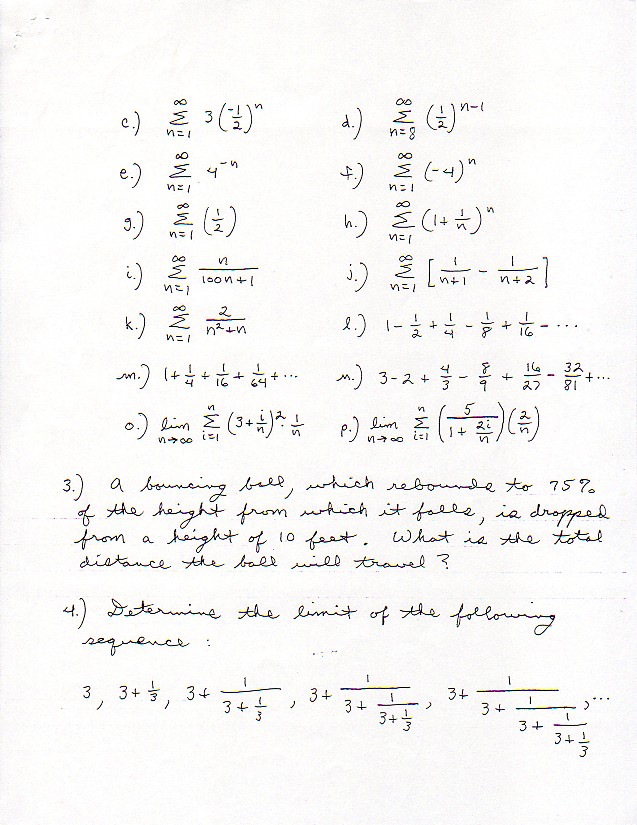 c.) ∞∑n=1 3(-1/2)^n d.) ∞∑n=8 (1/2)^n-1
e.) ∞∑n=1 4^-n f.) ∞∑n=1 (-4)^n
g.) ∞∑n=1 (1/2) h.) ∞∑n=1 (1+1/n)^n
i.) ∞∑n=1 n/100n+1 j.) ∞∑n=1 [1/n+1 - 1/n+2]
k.) ∞∑n=1 2/n²+n l.) 1-1/2+1/4-1/8+1/16-...
m.) 1+1/4+1/16+1/64+... n.) 3-2+4/3-8/9+16/27-32/81+...
o.) lim n→∞ n∑i=1 (3+i/n)²·1/n p.) lim n→∞ n∑i=1 (5/1+2i/n)(2/n)
3.) A bouncing ball, which rebounds to 75%
of the height from which it falls, is dropped
from a height of 10 feet. What is the total
distance the ball will travel?
4.) Determine the limit of the following
sequence:
3, 3+1/3, 3+1/(3+1/3), 3+1/(3+1/(3+1/3)), 3+1/(3+1/(3+1/(3+1/3))),...